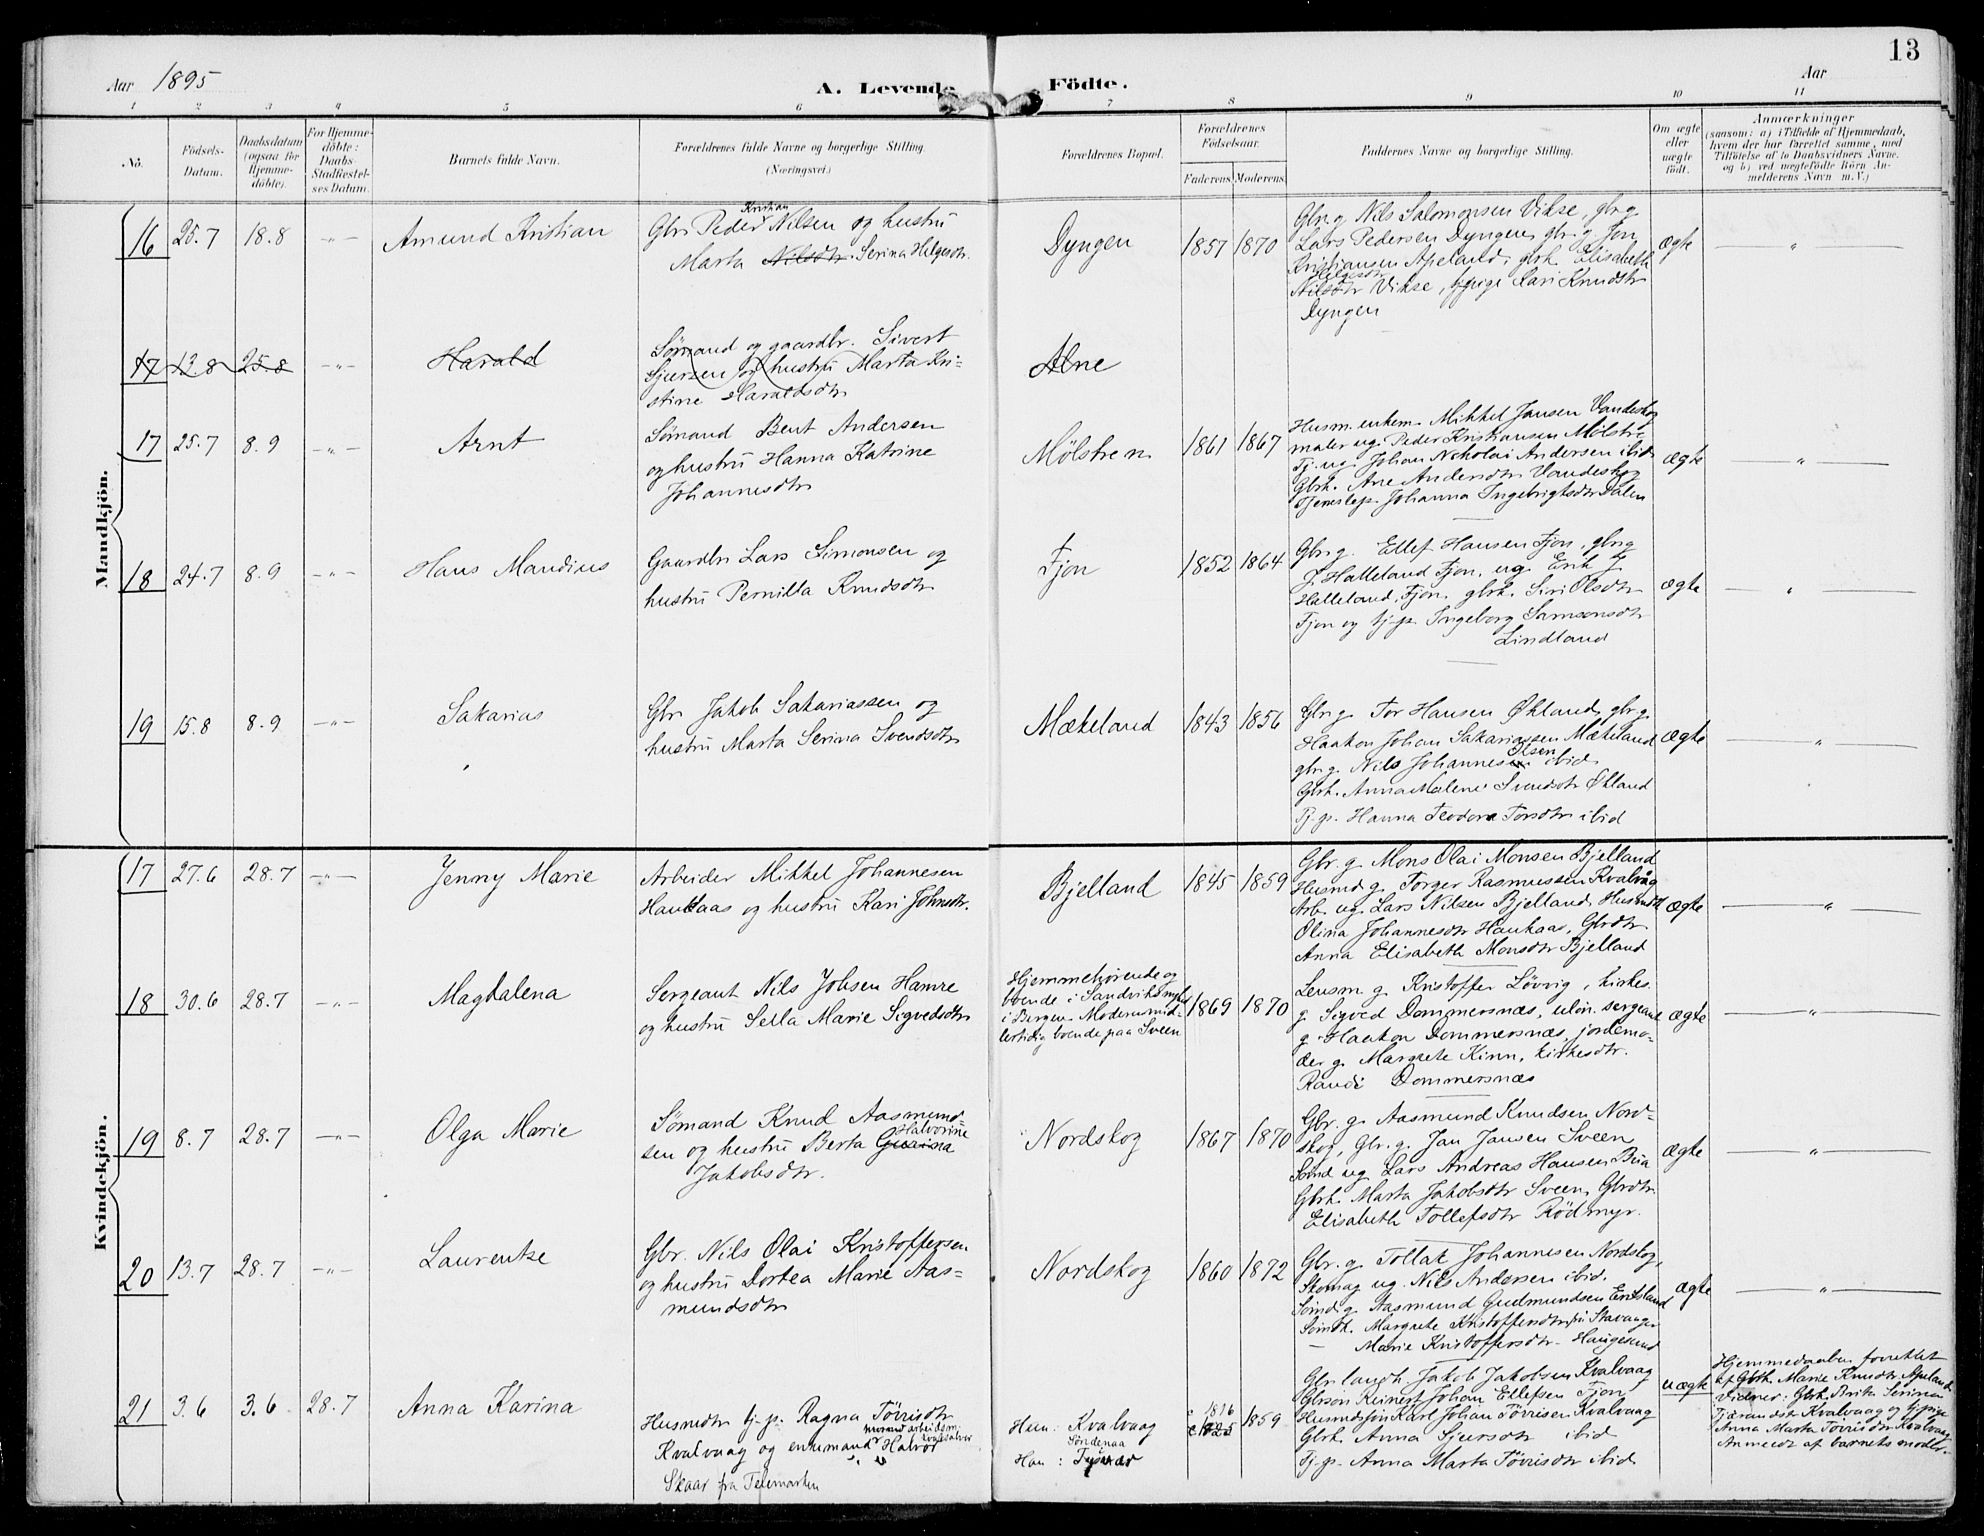 13
Aar 1895
A. Levende Födte.
Aar
1 2 3 4 5 6 7 8 9 10 11
No.
Födsels-Datum.
Daabsdatum (ogsaa for Hjemme-döbte).
For Hjemme-döbte: Daabs-Stadfæstel-ses Datum.
Barnets fulde Navn.
Forældrenes fulde Navne og borgerlige Stilling. (Næringsvei.)
Forældrenes Bopæl.
Forældrenes Födselsaar.
Faderens. Moderens.
Faddernes Navne og borgerlige Stilling.
Om ægte eller uægte födt.
Anmærkninger
(saasom: a) i Tilfælde af Hjemmedaab,
hvem der har forrettet samme, med
Tilföielse af to Daabsvidners Navne.
og b) ved uægtefödte Börn An-
melderens Navn m. V.)
Mandkjön.
16 25.7 18.8 -"- Amund Kristian
Gbr. Peder Kristian Nilsen og hustru
Marta Nilsdtr. Serina Helgesdtr.
Dyngen 1857 1870
Gbr. g. Nils Salomonsen Vikse, gbr. g.
Lars Pedersen Dyngen, gbr. g. Jon
Kristiansen Apeland, gbrk. Elisabeth
Helgesdtr
Nilsdtr Vikse, tj.pige Kari Knudsdtr
Dyngen
ægte "
17 13.8 25.8 -"- Harald
Sømand og gaardbr. Sivert
Sjursen og hustru Marta Kri-
stine Haraldsdtr
Alne
17 25.7 8.9 -"- Arnt
Sømand Bent Andersen
og hustru Hanna Katrine
Johannesdtr
Mølstren 1861 1867
Husm. enkem. Mikkel Jansen Vandeskog
maler ug. Peder Kristiansen Mølstre
Tj. ug. Johan Nikolai Andersen ibid
Gbrk. Ane Andersdtr Vandeskog
Tjenestep. Johanna Ingebrigtsdtr Dalen
ægte "
18 24.7 8.9 -"- Hans Mandius
Gaardbr Lars Simonsen og
hustru Pernilla Knudsdtr
Fjon 1852 1864
Gbr. g. Ellef Hansen Fjon, gbr. g.
J. Halleland Fjon, ug. Erik J.
Halleland, Fjon, gbrk. Siri Olsdtr
Fjon og tj.p. Ingeborg Samsonsdtr
Lindland
ægte "
19 15.8 8.9 -"- Sakarias
Gbr Jakob Sakariassen og
hustru Marta Serina Svendsdtr
Mækeland 1843 1856
Gbr. g. Tor Hansen Økland, gbr. g.
Haakon Johan Sakariassen Mækeland
gbr. g. Nils Johannesen ibid
Gbrk. Anna Malene Svendsdtr Økland
Tj. p. Hanna Teodora Torsdtr ibid
ægte "
Kvindekjön.
17 27.6 28.7 -"- Jenny Marie
Arbeider Mikkel Johannesen
Haukaas og hustru Kari Johnsdtr.
Bjelland 1845 1859
Gbr. g. Mons Olai Monsen Bjelland
Husmd g. Torger Rasmussen Kvalvåg
Arb. ug. Lars Nilsen Bjelland, Husmdk
Olina Johannesdtr Haukaas, Gbrdtr.
Anna Elisabeth Monsdtr Bjelland
ægte "
18 30.6 28.7 -"- Magdalena
Sergeant Nils Johsen Hamre
og hustru Sella Marie Sigvedsdtr
Hjemmehørende og
boende i Sandviksmyhr
i Bergen. Moderen mid-
lertidig boende paa Sveen
1869 1870
Lensm. g. Kristoffer Løvvig, kirkes.
g. Sigved Dommersnæs, uløn. sergeant
g. Haakon Dommersnæs, jordemo-
der g. Margrete Kinn, kirkesdtr.
Randi Dommersnæs
ægte "
19 8.7 28.7 -"- Olga Marie
Sømand Knud Aasmund-
sen og hustru Berta Gurina Halvorine
Jakobsdtr.
Nordskog 1867 1870
Gbr. g. Aasmund Knudsen Nord-
skog, Gbr. g. Jan Jansen Sveen
Sømd ug. Lars Andreas Hansen Bua
Gbrk. Marta Jakobsdtr Sveen, Gbrdtr.
Elisabeth Tollefsdtr Rödmyr.
ægte "
20 13.7 28.7 -"- Laurentze
Gbr. Nils Olai Kristoffersen
og hustru Dortea Marie Aas-
mundsdtr
Nordskog 1860 1872
Gbr. g. Tollak Johannesen Nordskog,
Skomag ug. Nils Andersen ibid.
Sömd g. Aasmund Gudmundsen Eritsland
Sömdk. Margrete Kristoffersdtr fri Stavanger
— Marie Kristoffersdtr - Haugesund
ægte "
21 3.6 3.6 28.7 Anna Karina
Husmdtr tj. p. Ragna Tørrisdtr
Kvalvaag og enkemand Halvor
Skaar fra Telemarken
Hun: Kvalvaag
Söndenaa
Han: Tysvær
1816
1825 1859
Gbr landh. Jakob Jakobsen Kvalvaag
Gbrson Reinert Johan Ellefsen Fjon
Husmdsøn Karl Johan Tørrisen Kvalvaag
Gbrk. Anna Sjursdtr ibid
Tj. p. Anna Marta Tørrisdtr ibid.
uægte
Hjemmedaaben forrettet
af Gbrk. Marie Knudsdtr Apeland
Vidner: Gbrk. Brita Serina
Tjærandsdtr Kvalvaag og tj.pige
Anna Marta Tørrisdtr Kvalvaag
Anmeldt af barnets moder.